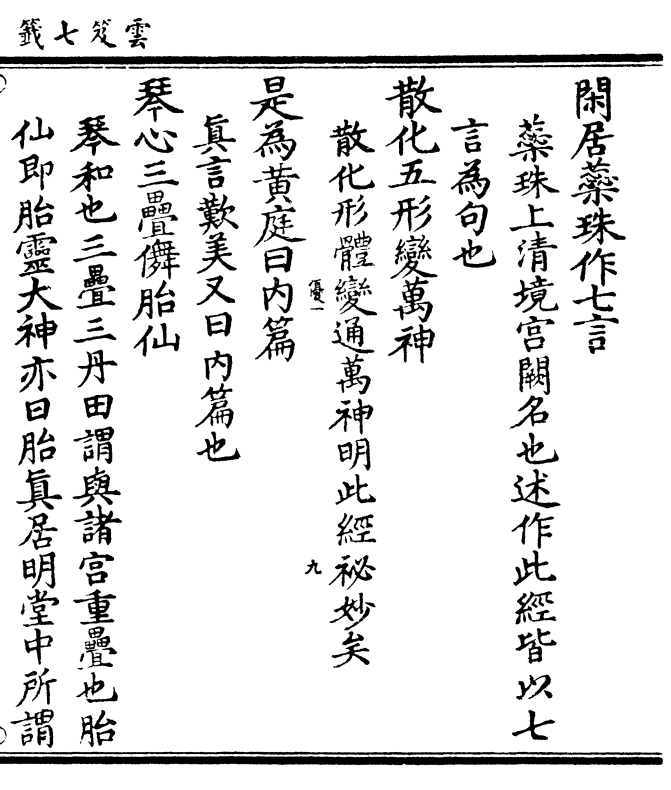 雲笈七籤
閑居蘂珠作七言
蘂珠上清境宫闕名也述作此經皆以七
言為句也
散化五形變萬神
散化形體變通萬神明此經祕妙矣
優一
九
是為黄庭曰内篇
眞言歎美又曰内篇也
琴心三疊儛胎仙
琴和也三疊三丹田謂與諸宫重疊也胎
仙即胎靈大神亦曰胎眞居明堂中所謂